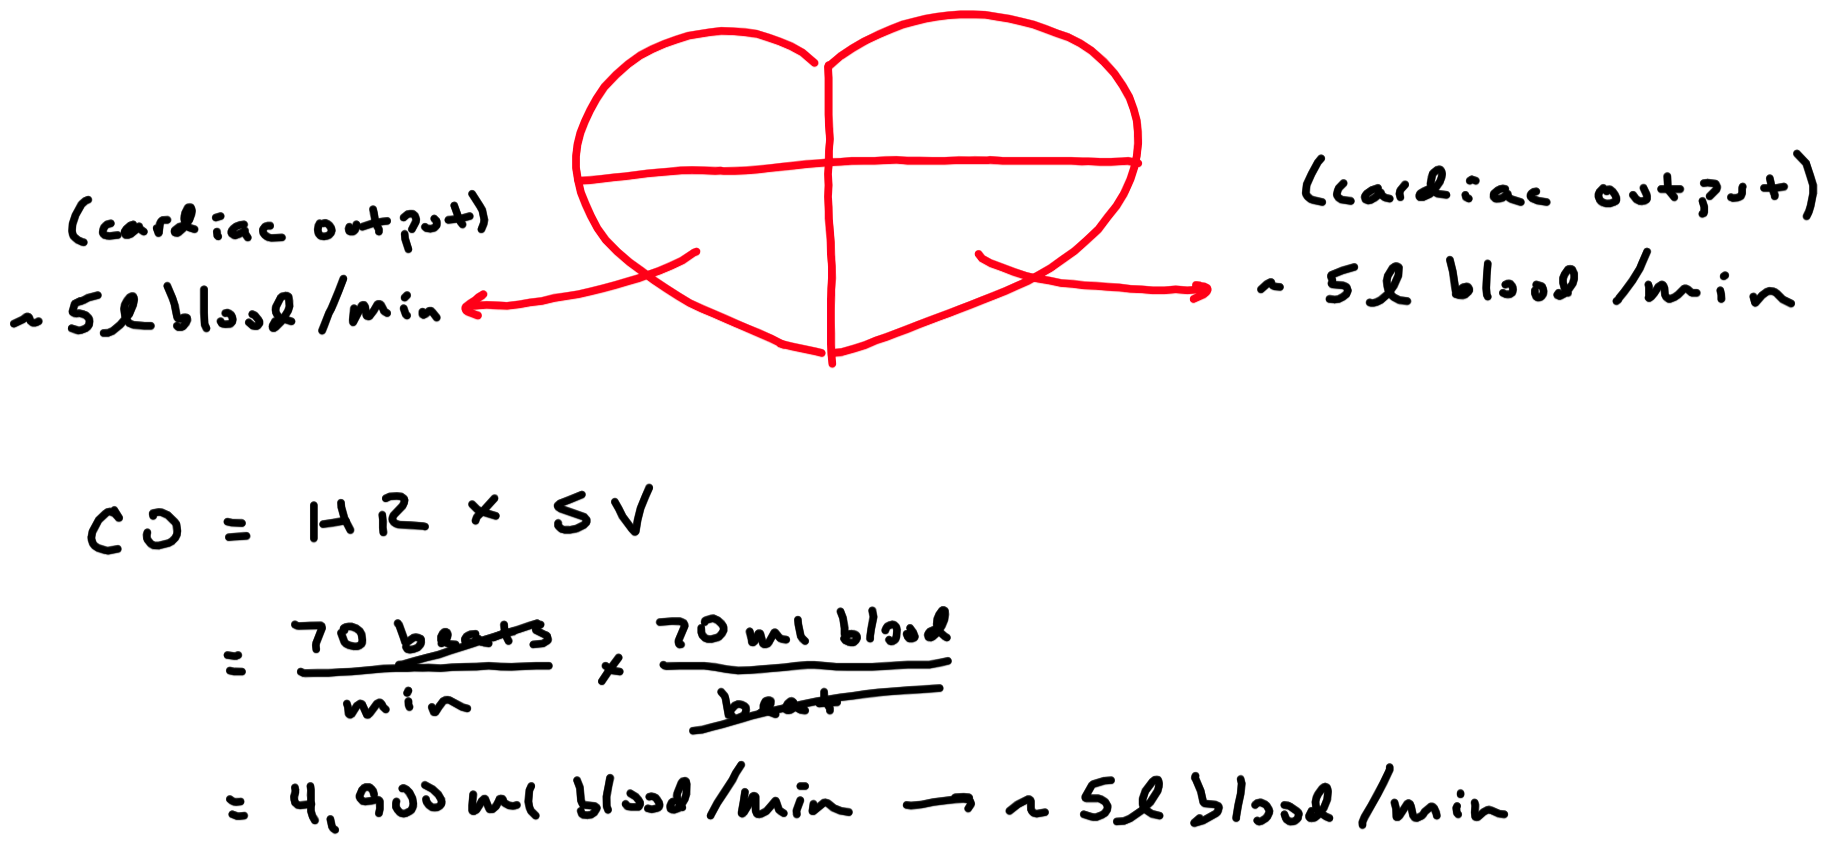 (cardiac output)
~ 5l blood /min
(cardiac output)
~ 5l blood /min
CO = HR x SV
= 70 beats / min x 70 ml blood / beat
= 4,900 ml blood /min — ~ 5l blood /min